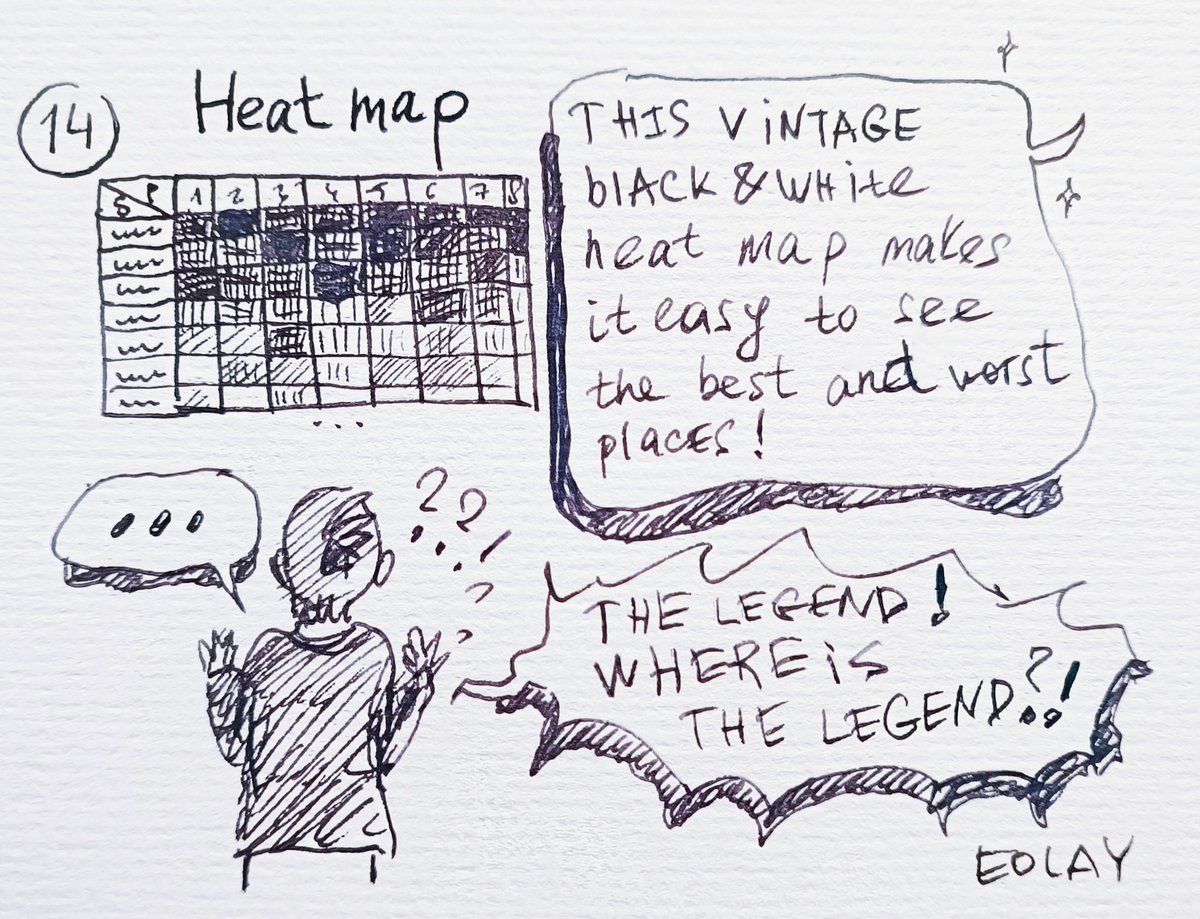 14
Heat map
S P 1 2 3 4 5 6 7 8
THIS ViNTAGE
blACK & WHite
heat map makes
it easy to see
the best and worst
places!
...
...
? ? ! ? ?
THE LEGEND!
WHERE iS
THE LEGEND?!
EOLAY